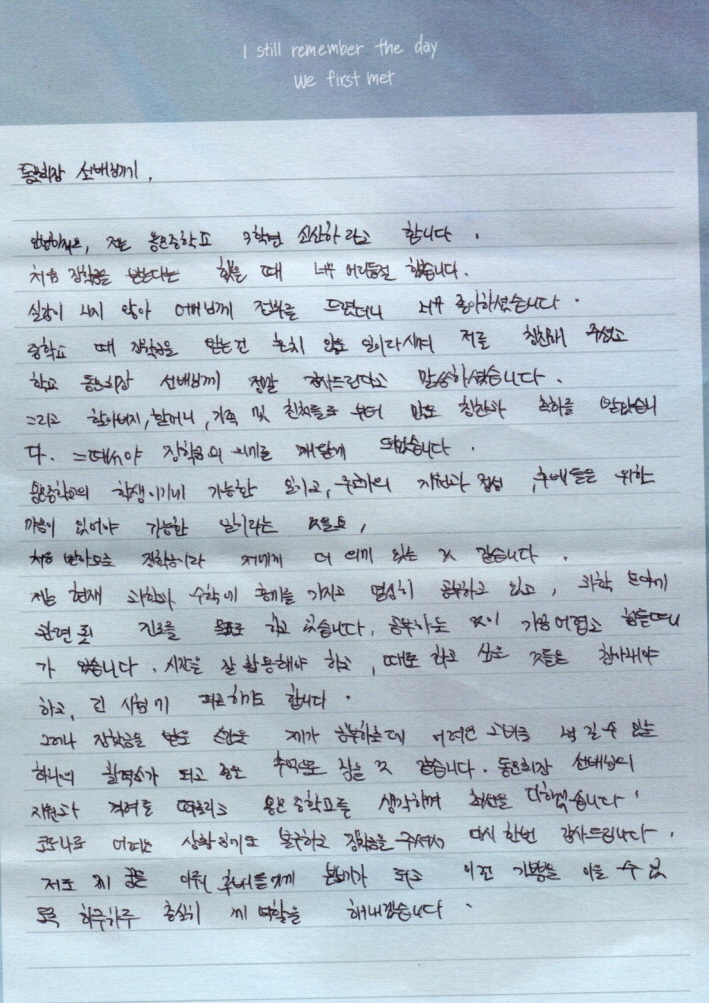 I still remember the day
We first met
동문회장 선배님께,
안녕하세요, 저는 용문중학교 3학년 신산하라고 합니다.
처음 장학금을 받는다는 했을 때 너무 어리둥절 했습니다.
실감이 나지 않아 어머님께 전화를 드렸더니 너무 좋아하셨습니다.
중학교 때 장학금을 받는건 흔치 않은 일이라시며 저를 칭찬해 주셨고
학교 동문회장 선배님께 정말 감사드린다고 말씀하셨습니다.
그리고 할아버지, 할머니, 가족 및 친척들로 부터 많은 칭찬과 축하를 받았습니
다. 그때서야 장학금의 의미를 깨닫게 되었습니다.
학생이기에 가능한 일이고, 지원과 정성, 후배들을 위한
마음이 있어야 가능한 일이라는 것을요,
처음 받아보는 장학금이라 저에게 더 의미 있는 것 같습니다.
저는 현재 과학과 수학에 흥미를 가지고 열심히 공부하고 있고, 과학 분야에
관련된 진로를 목표로 하고 있습니다. 공부하는 것이 가끔 어렵고 힘들때
가 있습니다. 시간을 잘 활용해야 하고, 때로 하고 싶은 것들을 참아내야
하고, 긴 시험기 피곤하기도 합니다.
그러나 장학금을 받은 제가 공부하는데 어려운 고비를 넘길 수 있는
하나의 활력소가 되고 좋은 추억으로 남을 것 같습니다. 동문회장 선배님의
지원과 격려를 떠올리고 용문중학교를 생각하며 최선을 다하겠습니다.
코로나로 어려운 상황임에도 불구하고 장학금을 주셔서 다시 한번 감사드립니다.
저도 제 꿈을 이뤄 후배들에게 본보기가 되고 이런 기쁨을 이을 수 있
도록 하루하루 충실히 제 역할을 해내겠습니다.